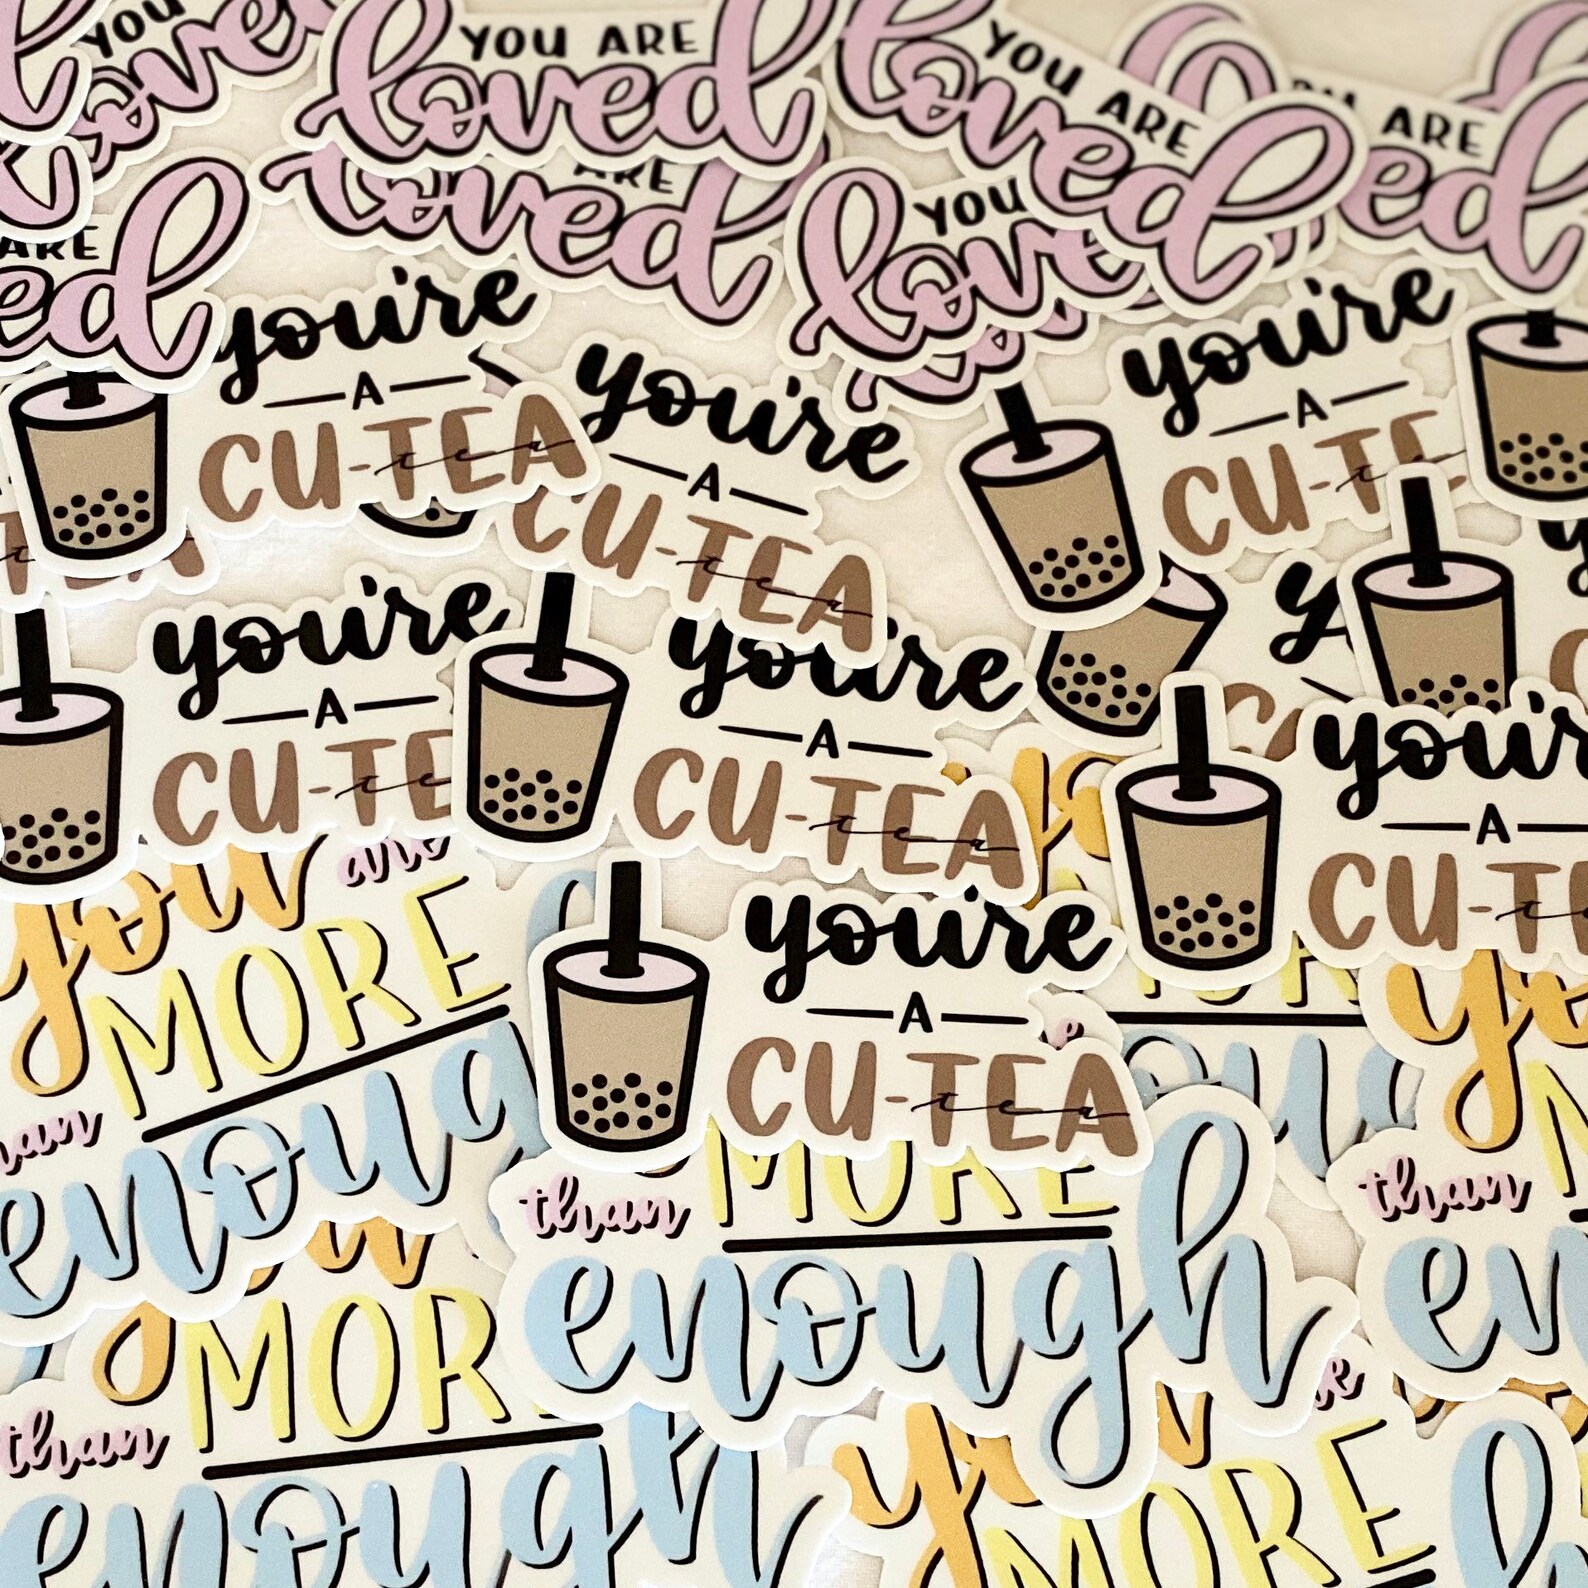 YOU
loved
YOU ARE
loved
YOU ARE
loved
ARE
ed
ARE
loved
YOU
love
ARE
ed
you're
A
CU-TEA
tea
you're
A
CU-TEA
tea
you're
A
CU-TE
you're
A
CU-TE
you're
A
CU-TEA
tea
you're
A
CU-TEA
tea
you're
A
CU-TE
you are
MORE
than
enoug
MORE
than
enough
MORE
than
enough
you
MORE
than
en
you
MORE